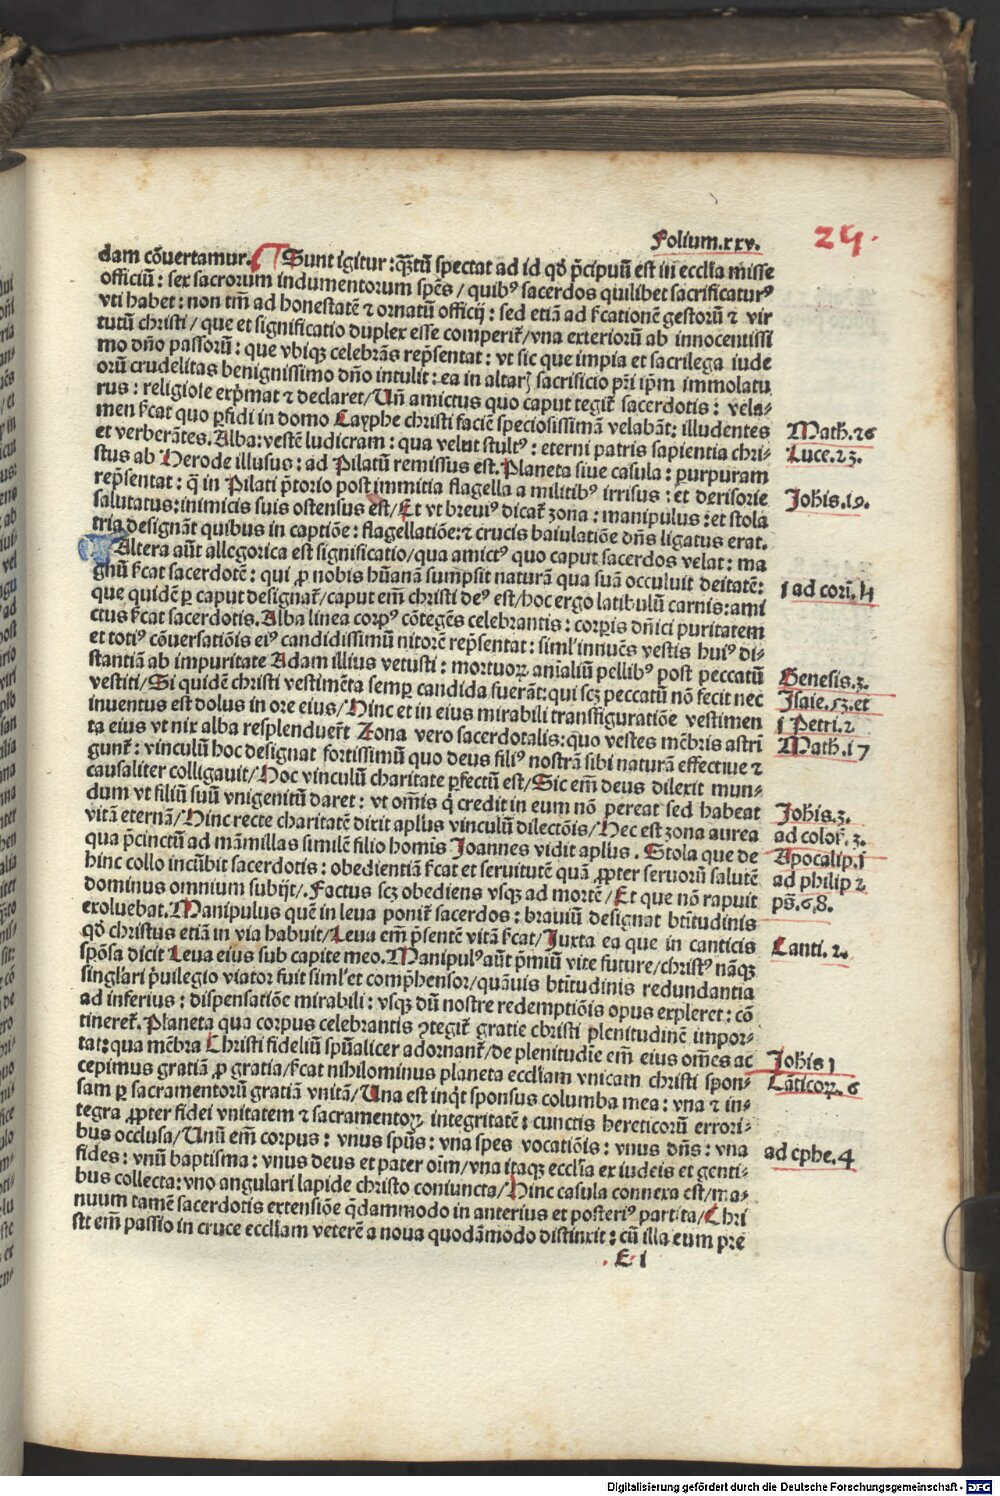 Folium.xxv.
24.
dam cōuertamur. Sunt igitur: q̄ꝫtū spectat ad id qđ p̄cipuū est in eccl̄ia misse
officiū: sex sacrorum indumentorum spēs / quibꝰ sacerdos quilibet sacrificaturꝰ
vti habet: non tm̄ ad honestatē ⁊ ornatū officij: sed etiā ad s̄cationē gestorū ⁊ vir
tutū christi / que et significatio duplex esse comperit᷑ / vna exteriorū ab innocentissi
mo dn̄o passorū: que vbiqꝫ celebrās rep̄sentat: vt sic que impia et sacrilega iude
orū crudelitas benignissimo dn̄o intulit: ea in altarꝭ sacrificio p̄ri ip̄m immolatu
rus: religiose exp̄mat ⁊ declaret / Un̄ amictus quo caput tegit᷑ sacerdotis: vela⸗
men s̄cat quo ꝑfidi in domo Cayphe christi faciē speciosissimā velabāt: illudentes
et verberātes. Alba: vestē ludicram: qua velut stultꝰ: eterni patris sapientia chri⸗
stus ab Herode illusus: ad Pilatū remissus est. Planeta siue casula: purpuram
rep̄sentat: q̄ in Pilati p̄torio post immitia flagella a militibꝰ irrisus: et derisorie
salutatus: inimicis suis ostensus est / Et vt breuiꝰ dicat᷑ zona: manipulus: et stola
tria designāt quibus in captiōe: flagellatiōe: ⁊ crucis baiulatiōe dn̄s ligatus erat.
Altera aūt allegorica est significatio / qua amictꝰ quo caput sacerdos velat: ma
ghū s̄cat sacerdotē: qui ꝓ nobis hūanā sumpsit naturā qua suā occuluit deitatē:
que quidē ꝑ caput designat᷑ / caput em̄ christi deꝰ est / hoc ergo latibulū carnis: ami
ctus s̄cat sacerdotis. Alba linea corpꝰ cōtegēs celebrantis: corꝑis dn̄ici puritatem
et totiꝰ cōuersatiōis eiꝰ candidissimū nitorē rep̄sentat: siml̄ innuēs vestis huiꝰ di⸗
stantiā ab impuritate Adam illius vetusti: mortuoꝝ aīaliū pellibꝰ post peccatū
vestiti / Si quidē christi vestimēta semꝑ candida fuerāt: qui scꝫ peccatū nō fecit nec
inuentus est dolus in ore eius / Hinc et in eius mirabili transfiguratiōe vestimen
ta eius vt nix alba resplenduer̄t Zona vero sacerdotalis: quo vestes mēbris astrī
gunt᷑: vinculū hoc designat fortissimū quo deus filiꝰ nostrā sibi naturā effectiue ⁊
causaliter colligauit / Hoc vinculū charitate ꝑfectū est / Sic em̄ deus dilexit mun⸗
dum vt filiū suū vnigenitū daret: vt om̄is q̇ credit in eum nō pereat sed habeat
vitā eternā / Hinc recte charitatē dixit apl̄us vinculū dilectōis / Hec est zona aurea
qua p̄cinctū ad māmillas similē filio homis Joannes vidit apl̄us. Stola que de
hinc collo incūbit sacerdotis: obedientiā s̄cat et seruitutē quā ꝓpter seruorū salutē
dominus omnium subijt / . Factus scꝫ obediens vsqꝫ ad mortē / Et que nō rapuit
exoluebat. Manipulus quē in leua ponit᷑ sacerdos: brauiū designat btītudinis
qđ christus etiā in via habuit / Leua em̄ p̄sentē vitā s̄cat / Juxta ea que in canticis
spōsa dicit Leua eius sub capite meo. Manipulꝰ aūt p̄miū vite future / christꝰ nāqꝫ
singl̄ari p̄uilegio viator fuit siml̄ et comp̄hensor / quāuis btītudinis redundantia
ad inferius: dispensatiōe mirabili: vsqꝫ dū nostre redemptiōis opus expleret: cō
tineret᷑. Planeta qua corpus celebrantis ꝯtegit᷑ gratie christi plenitudinē impor⸗
tat: qua mēbra Christi fideliū spūalicer adornant᷑ / de plenitudīe em̄ eius om̄es ac
cepimus gratiā ꝓ gratia / s̄cat nihilominus planeta eccliam vnicam christi spon⸗
sam ꝑ sacramentorū gratiā vnitā / Una est inq̇t sponsus columba mea: vna ⁊ in⸗
tegra ꝓpter fidei vnitatem ⁊ sacramentoꝝ integritatē: cunctis hereticorū errori⸗
bus occlusa / Unū em̄ corpus: vnus spūs: vna spes vocatiōis: vnus dn̄s: vna
fides: vnū baptisma: vnus deus et pater oīm / vna itaqꝫ eccl̄ia ex iudeis et genti⸗
bus collecta: vno angulari lapide christo coniuncta / Hinc casula connexa est / ma⸗
nuum tamē sacerdotis extensiōe q̄dammodo in anterius et posteriꝰ partita / Chri
sti em̄ passio in cruce eccliam veterē a noua quodāmodo distinxit: cū illa eum pre
E 1
Math. 26
Luce. 23.
Johis. 19.
1 ad corī. 4
Genesis. 3.
Isaie. 53. et
1 Petri. 2
Math. 17
Johis. 3.
ad colos̄. 3.
Apocalip. 1
ad philip 2
ps̄. 68.
Canti. 2.
Johis 1
Cāticoꝝ. 6
ad ephe. 4
Digitalisierung gefördert durch die Deutsche Forschungsgemeinschaft - DFG